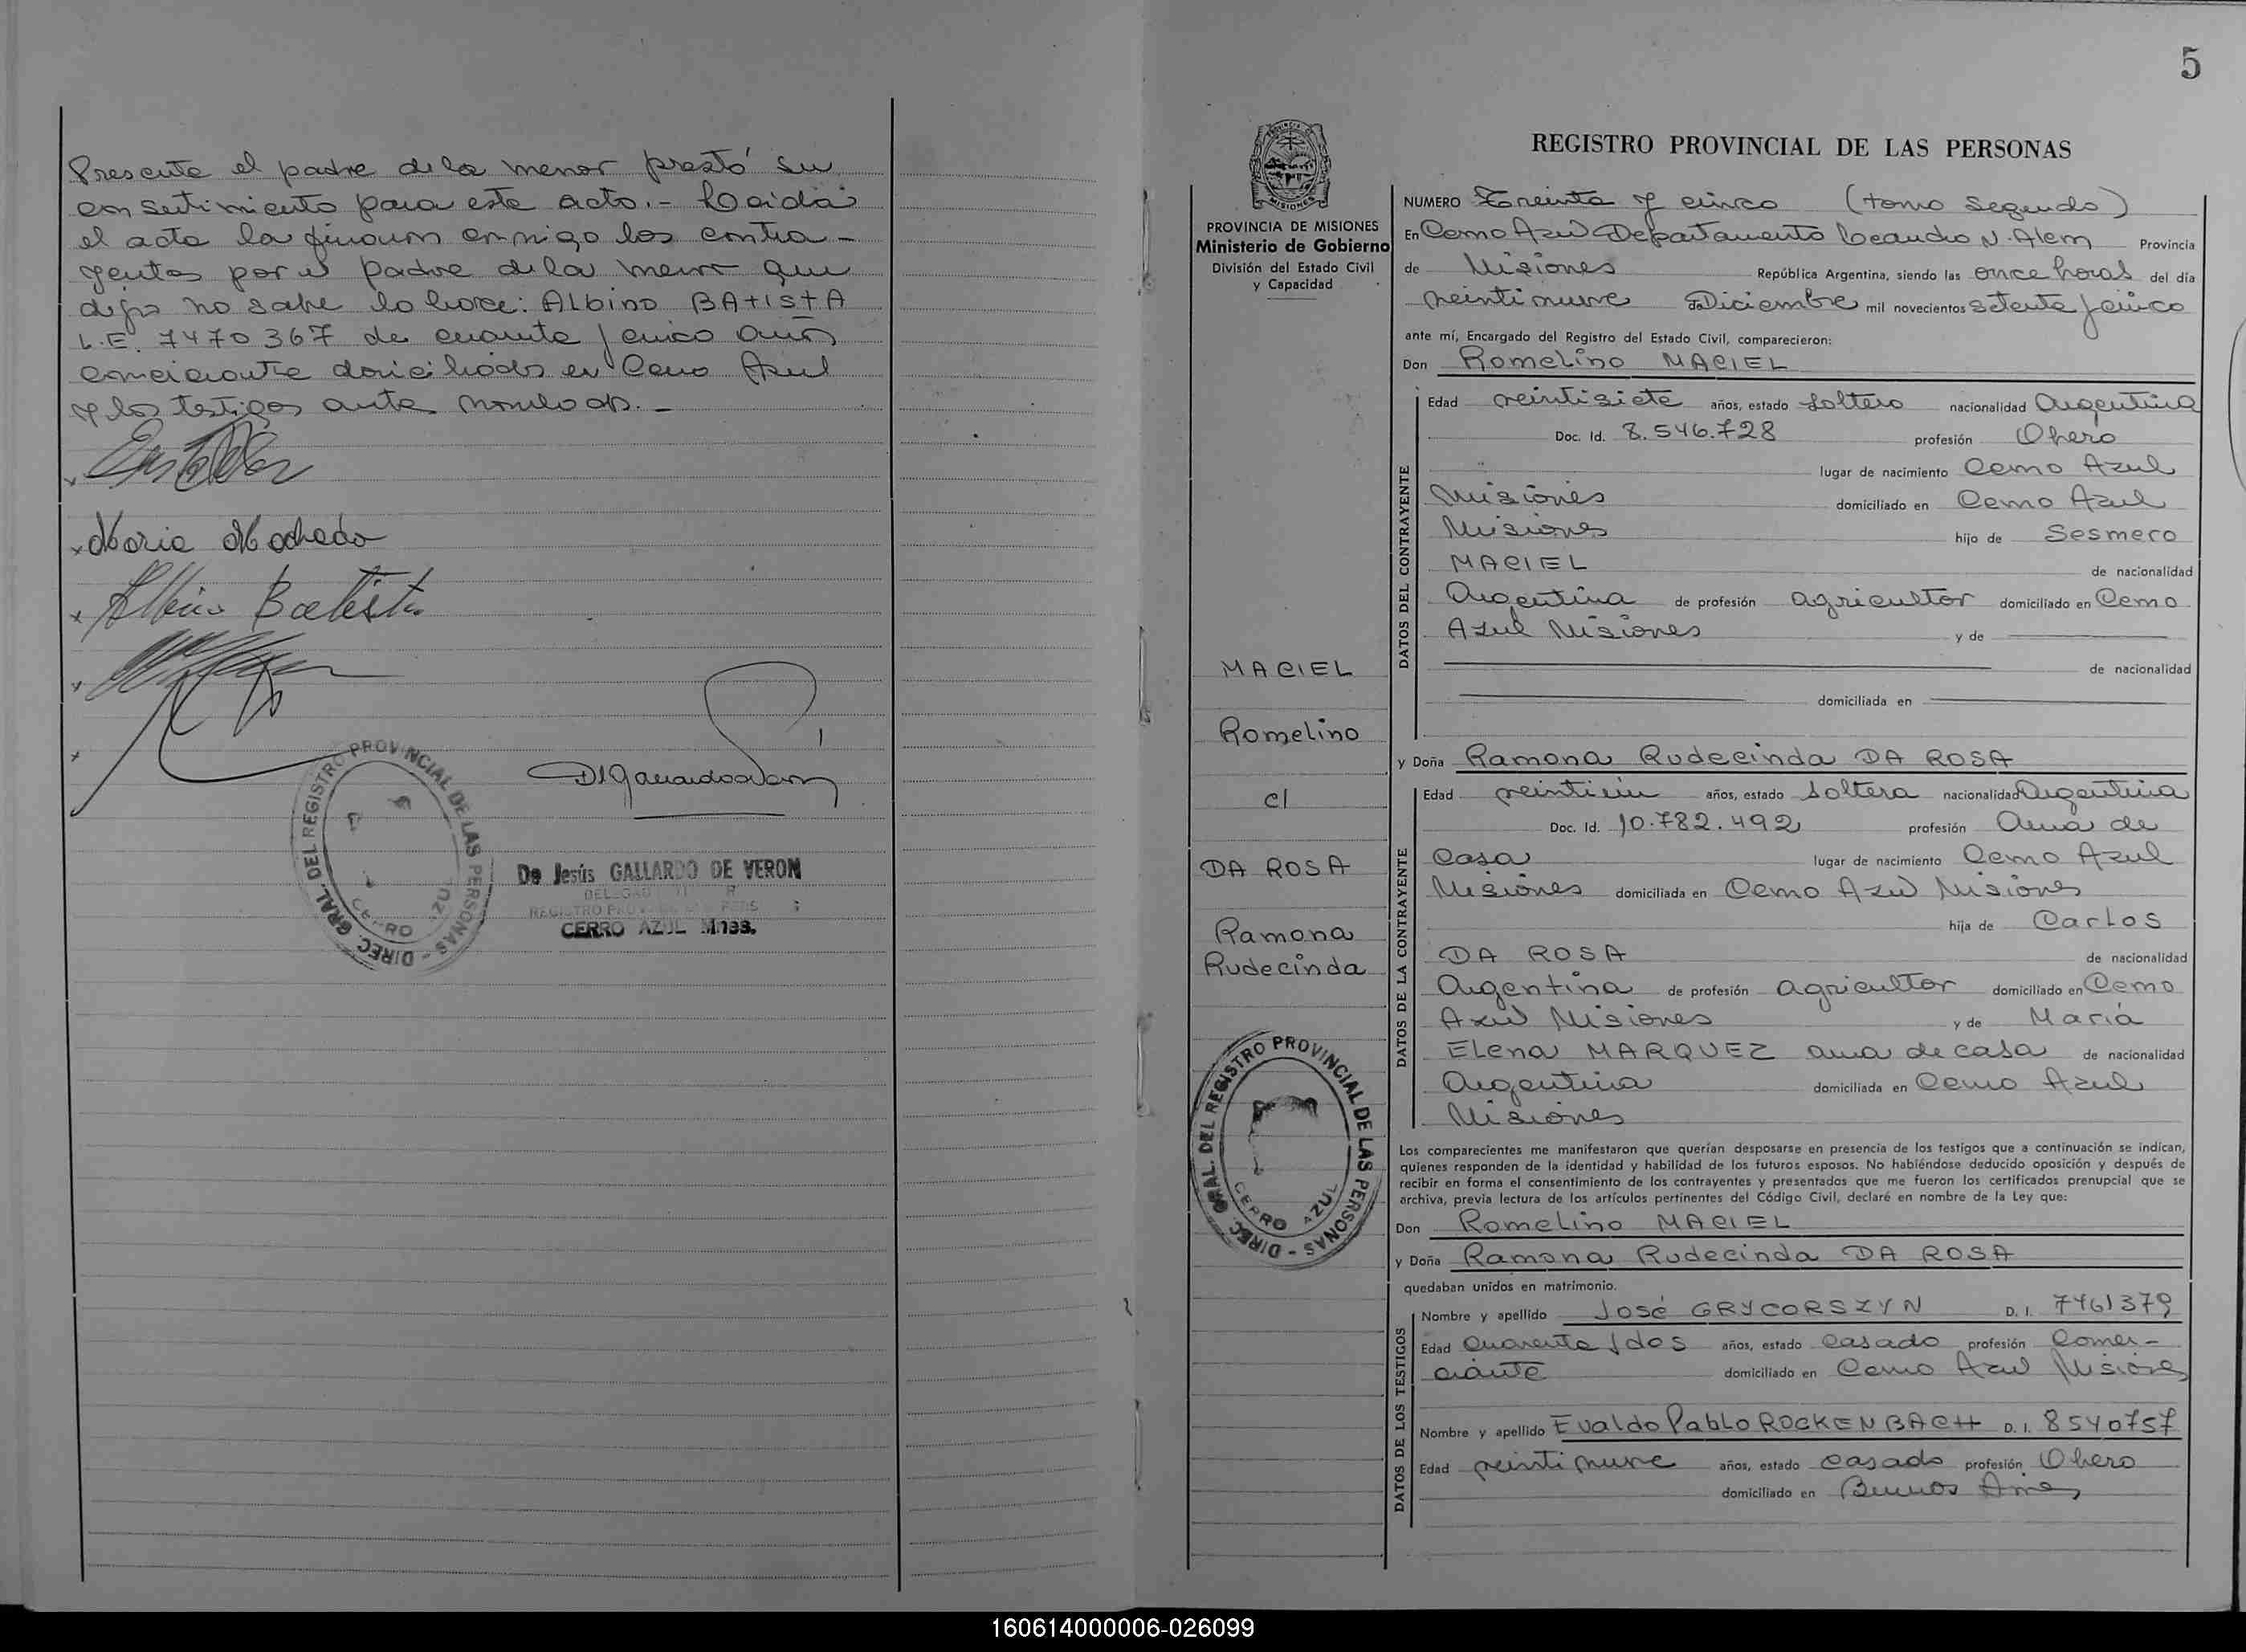 Presente el padre de la menor prestó su
consentimiento para este acto.- Leida
el acta la firman conmigo los contra-
yentes por el padre de la menor que
dijo no sabe lo hace: Albino BAtistA
L.E. 7470367 de cuarenta y cinco años
comerciante domiciliado en Cerro Azul
y los testigos ante nombrados.-
x
x Maria Machado
x Albino Batista
x
x
DIREC. GRAL. DEL REGISTRO PROVINCIAL DE LAS PERSONAS -
CERRO AZUL
De Jesús GALLARDO DE VERON
CERRO AZUL Mnes.
5
REGISTRO PROVINCIAL DE LAS PERSONAS
PROVINCIA DE MISIONES
Ministerio de Gobierno
División del Estado Civil
y Capacidad
MACIEL
Romelino
c/
DA ROSA
Ramona
Rudecinda
DIREC. GRAL. DEL REGISTRO PROVINCIAL DE LAS PERSONAS -
CERRO AZUL
NUMERO Treinta y cinco (tomo segundo)
En Cerro Azul Departamento Leandro N. Alem Provincia
de Misiones República Argentina, siendo las once horas del día
veintinueve de Diciembre mil novecientos setenta y cinco
ante mí, Encargado del Registro del Estado Civil, comparecieron:
Don Romelino MACIEL
DATOS DEL CONTRAYENTE
Edad veintisiete años, estado soltero nacionalidad Argentina
Doc. Id. 8.546.728 profesión Obrero
lugar de nacimiento Cerro Azul
Misiones domiciliado en Cerro Azul
Misiones hijo de Sesmero
MACIEL de nacionalidad
Argentina de profesión agricultor domiciliado en Cerro
Azul Misiones y de
de nacionalidad
domiciliada en
y Doña Ramona Rudecinda DA ROSA
DATOS DE LA CONTRAYENTE
Edad veintiún años, estado soltera nacionalidad Argentina
Doc. Id. 10.782.492 profesión Ama de
Casa lugar de nacimiento Cerro Azul
Misiones domiciliada en Cerro Azul Misiones
hija de Carlos
DA ROSA de nacionalidad
Argentina de profesión agricultor domiciliado en Cerro
Azul Misiones y de María
Elena MARQUEZ ama de casa de nacionalidad
Argentina domiciliada en Cerro Azul
Misiones
Los comparecientes me manifestaron que querían desposarse en presencia de los testigos que a continuación se indican,
quienes responden de la identidad y habilidad de los futuros esposos. No habiéndose deducido oposición y después de
recibir en forma el consentimiento de los contrayentes y presentados que me fueron los certificados prenupcial que se
archiva, previa lectura de los artículos pertinentes del Código Civil, declaré en nombre de la Ley que:
Don Romelino MACIEL
y Doña Ramona Rudecinda DA ROSA
quedaban unidos en matrimonio.
DATOS DE LOS TESTIGOS
Nombre y apellido José GRYCORSZYN D. I. 7461379
Edad cuarenta y dos años, estado casado profesión Comer-
ciante domiciliado en Cerro Azul Misiones
Nombre y apellido Evaldo Pablo ROCKENBACH D. I. 8540757
Edad veintinueve años, estado casado profesión Obrero
domiciliado en Buenos Aires
160614000006-026099